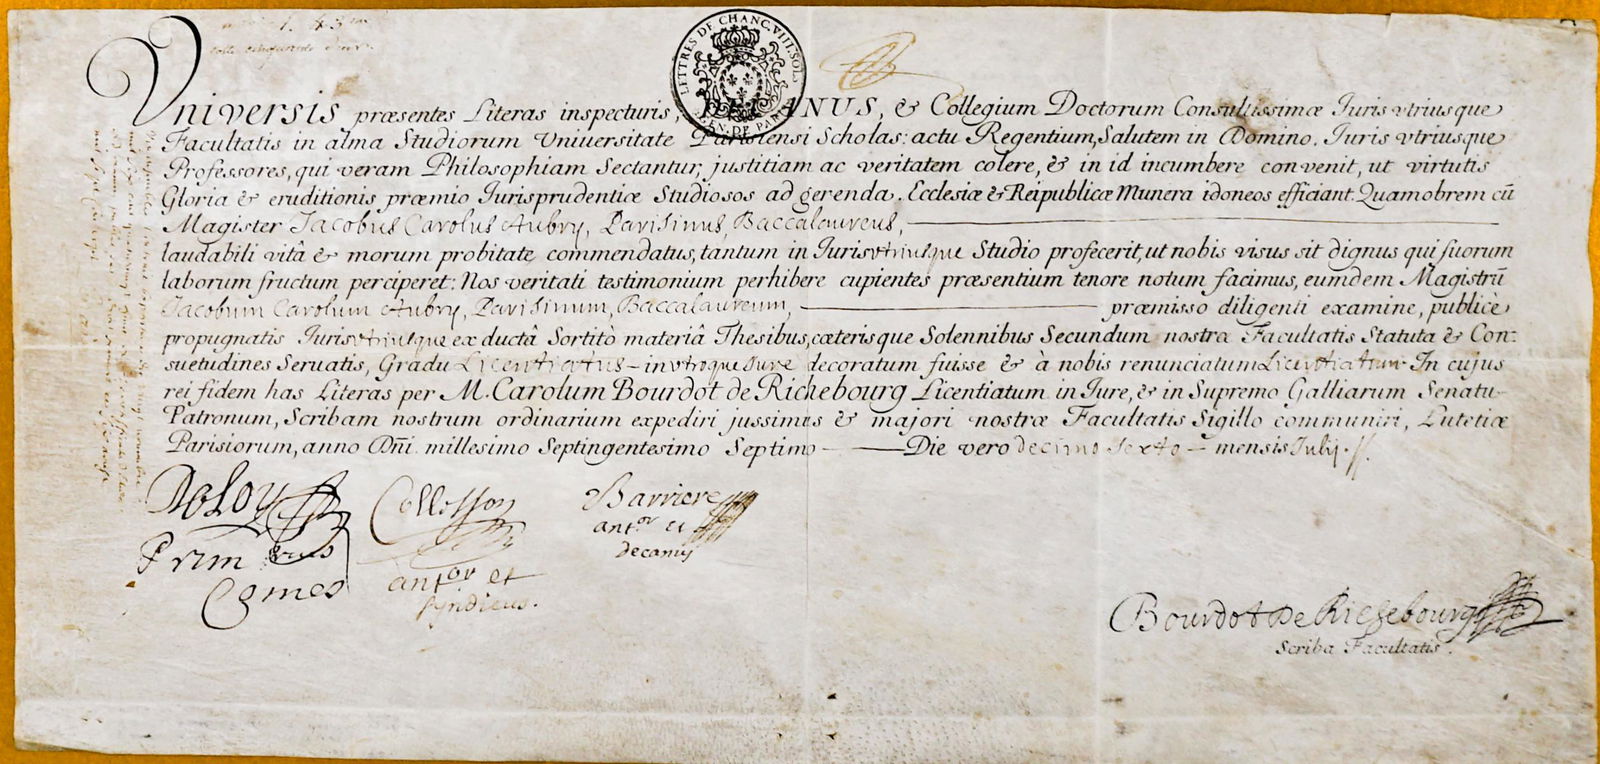 LETTRES DE CHANC. VIII. SOLS
GEN. DE PARIS
Vniversis præsentes Literas inspecturis, ANUS, & Collegium Doctorum Consultissimæ Iuris vtriusque
Facultatis in alma Studiorum Vniuersitate Parisiensi Scholas: actu Regentium, Salutem in Domino. Iuris vtriusque
Professores, qui veram Philosophiam Sectantur, justitiam ac veritatem colere, & in id incumbere convenit, ut virtutis
Gloria & eruditionis præmio Iurisprudentiæ Studiosos ad gerenda. Ecclesiæ & Reipublicæ Munera idoneos efficiant. Quamobrem cū
Magister Jacobus Carolus Aubry, Parisinus, Baccalaureus,
laudabili vitâ & morum probitate commendatus, tantum in Iuris vtriusque Studio profecerit, ut nobis visus sit dignus qui suorum
laborum fructum perciperet: Nos veritati testimonium perhibere cupientes præsentium tenore notum facimus, eumdem Magistrū
Jacobum Carolum Aubry, Parisinum, Baccalaureum, præmisso diligenti examine, publicè
propugnatis Iuris vtriusque ex ductâ Sortitò materiâ Thesibus, cæterisque Solennibus Secundum nostræ Facultatis Statuta & Con-
suetudines Seruatis, Gradu Licentiatus - in vtroque Jure decoratum fuisse & à nobis renunciatum Licentiatum - In cujus
rei fidem has Literas per M. Carolum Bourdot de Richebourg Licentiatum in Iure, & in Supremo Galliarum Senatu-
Patronum, Scribam nostrum ordinarium expediri jussimus & majori nostræ Facultatis Sigillo communiri, Lutetiæ
Parisiorum, anno Dñi. millesimo Septingentesimo Septimo - Die vero decimo Sexto - mensis Julij.
DeLoy
Collesson
Barriere
antor et
decanus
Comes
antor et
syndicus.
Bourdot De Richebourg
Scriba Facultatis.